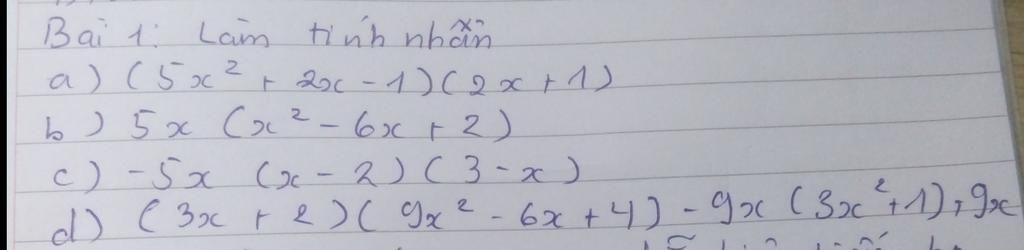 Bài 1: Làm tính nhân
a) (5x² + 2x - 1)(2x + 1)
b) 5x (x² - 6x + 2)
c) -5x (x - 2)(3 - x)
d) (3x + 2)(9x² - 6x + 4) - 9x (3x² + 1) + 9x